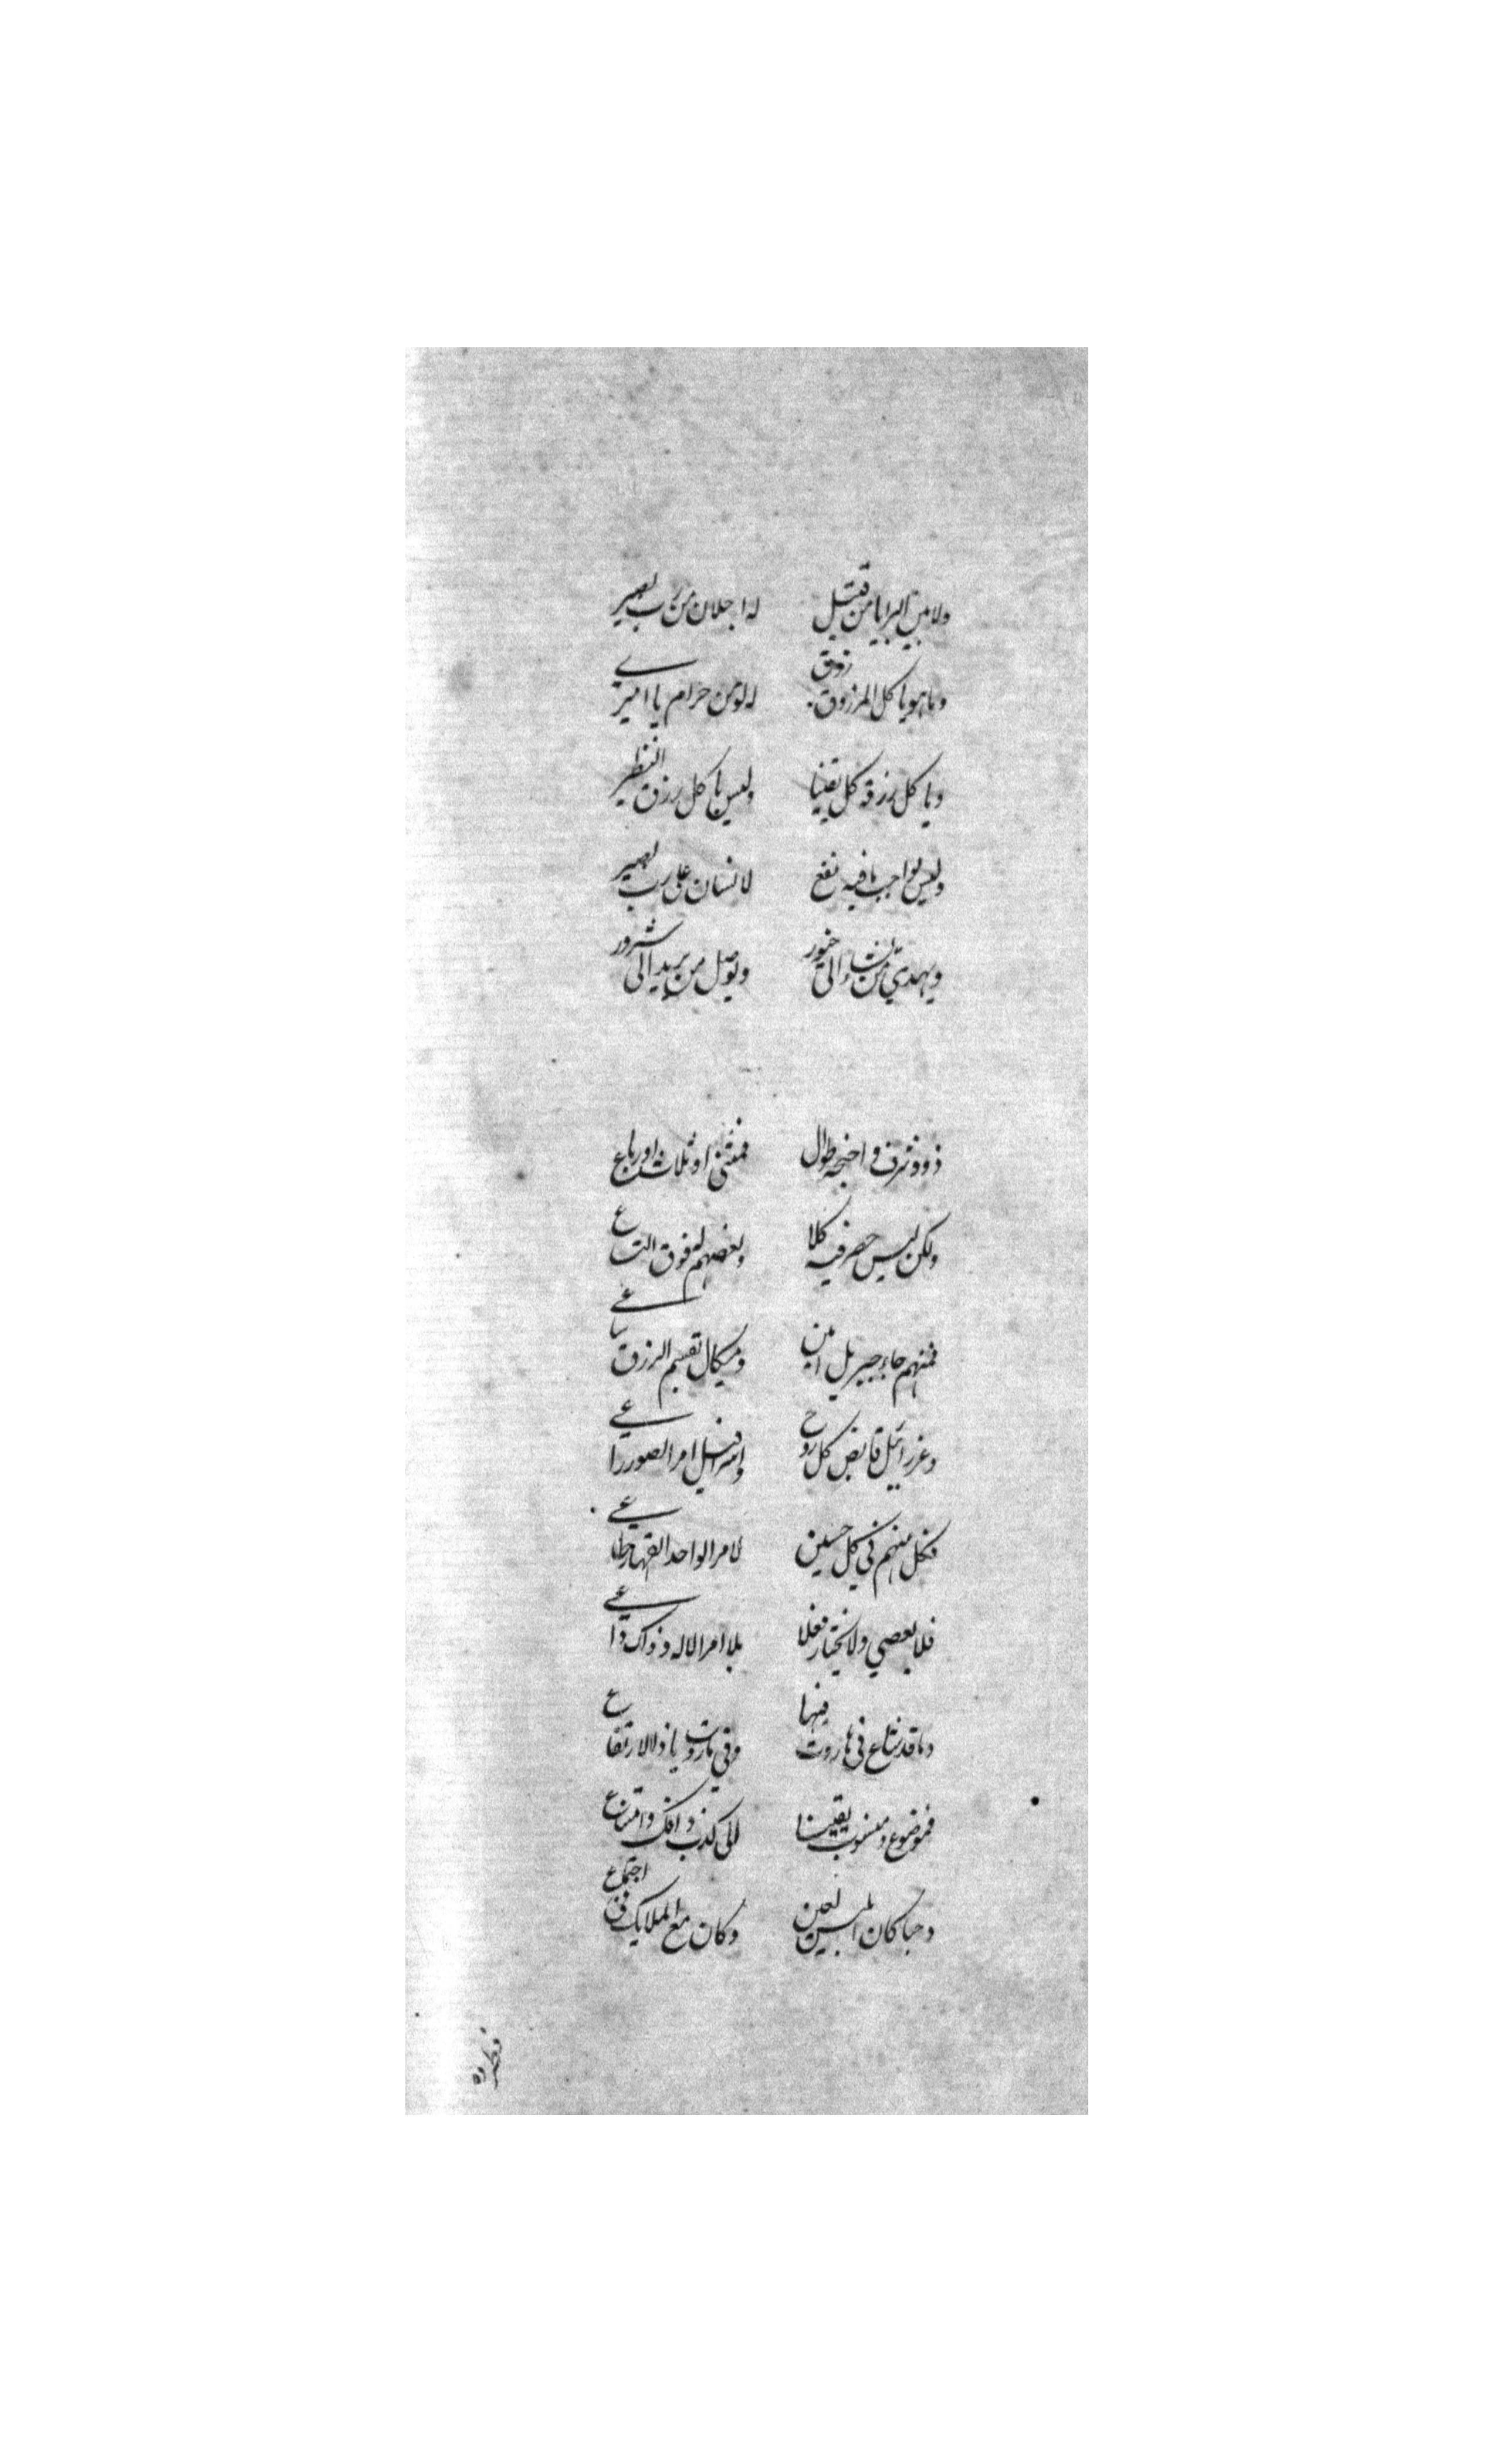 ولا بين البرايا من قتيل له اجلان من رب بصير
وما هو ياكل المرزوق رزق له لو من حرام يا اميري
وياكل رزقه كل يقينا وليس ياكل رزق النظير
وليس بواجب ما فيه نفع لانسان على رب بصير
ويهدي من يشاء الى خيور ويوصل من يريد الى شرور
ذوو شرف واجنحه طوال فمثنى او ثلاث او رباع
ولكن ليس حصر فيه كلا وبعضهم له فوق التساع
فمنهم جاء جبريل امين وميكال تقسيم الرزق ساعي
وعزرائيل قابض كل روح واسرافيل امر الصور راعي
فكل منهم في كل حين لامر الواحد القهار طاعي
فلا يعصي ولا يختار فعلا بلا امر الاله وذاك داعي
وما قد شاع في هاروت فيها وفي ماروت يا ذا الارتفاع
فموضوع ومنسوب يقينا الى كذب وافك واقتراع
وجنا كان ابليس لعين وكان مع الملايك في اجتماع